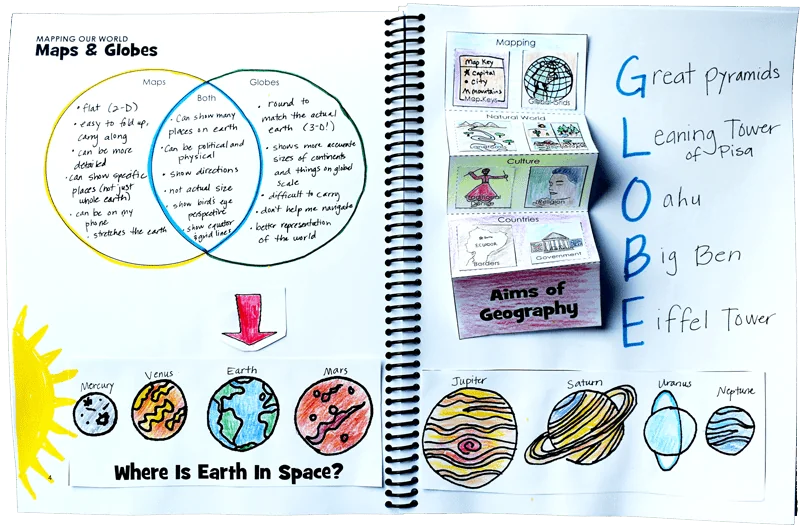 MAPPING OUR WORLD
Maps & Globes
Maps
Both
Globes
• flat (2-D)
• easy to fold up,
carry along
• can be more
detailed
• can show specific
places (not just
whole earth)
• can be on my
phone
• stretches the earth
• Can show many
places on earth
• Can be political and
physical
• show directions
• not actual size
• show bird's eye
perspective
• show equator
& grid lines
• round to
match the actual
earth (3-D!)
• shows more accurate
sizes of continents
and things on global
scale
• difficult to carry
• don't help me navigate
• better representation
of the world
Mercury
Venus
Earth
Mars
Where Is Earth In Space?
4
Mapping
Map Key
★ Capital
• City
M mountains
Map Keys
Global Grids
Natural World
Landforms
Culture
Religion
Countries
ECUADOR
Borders
Government
Aims of
Geography
Great pyramids
Leaning Tower
of Pisa
Oahu
Big Ben
Eiffel Tower
Jupiter
Saturn
Uranus
Neptune